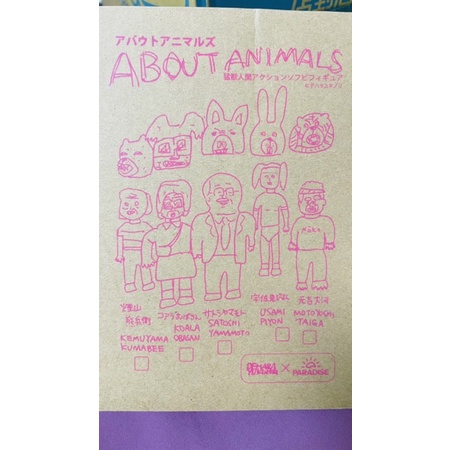 アバウトアニマルズ
ABOUT ANIMALS
猛獣人間アクションソフビフィギュア
KEMUYAMA
KUMABEE
コアラおばさん
KOALA
OBASAN
サトシヤマモト
SATOCHI
YAMAMOTO
USAMI
PIYON
元吉大河
MOTOYOSHI
TAIGA
×
PARADISE